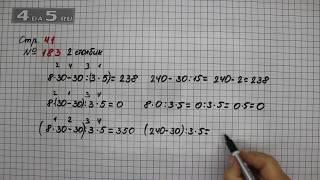 4DA5.RU
Стр. 41
№ 183 2 столбик
2 4 3 1
8·30-30:(3·5)=238 240-30:15=240-2=238
2 1 3 4
8(30-30):3·5=0 8·0:3·5=0:3·5=0·5=0
1 2 3 4
(8·30-30):3·5=350 (240-30):3·5=